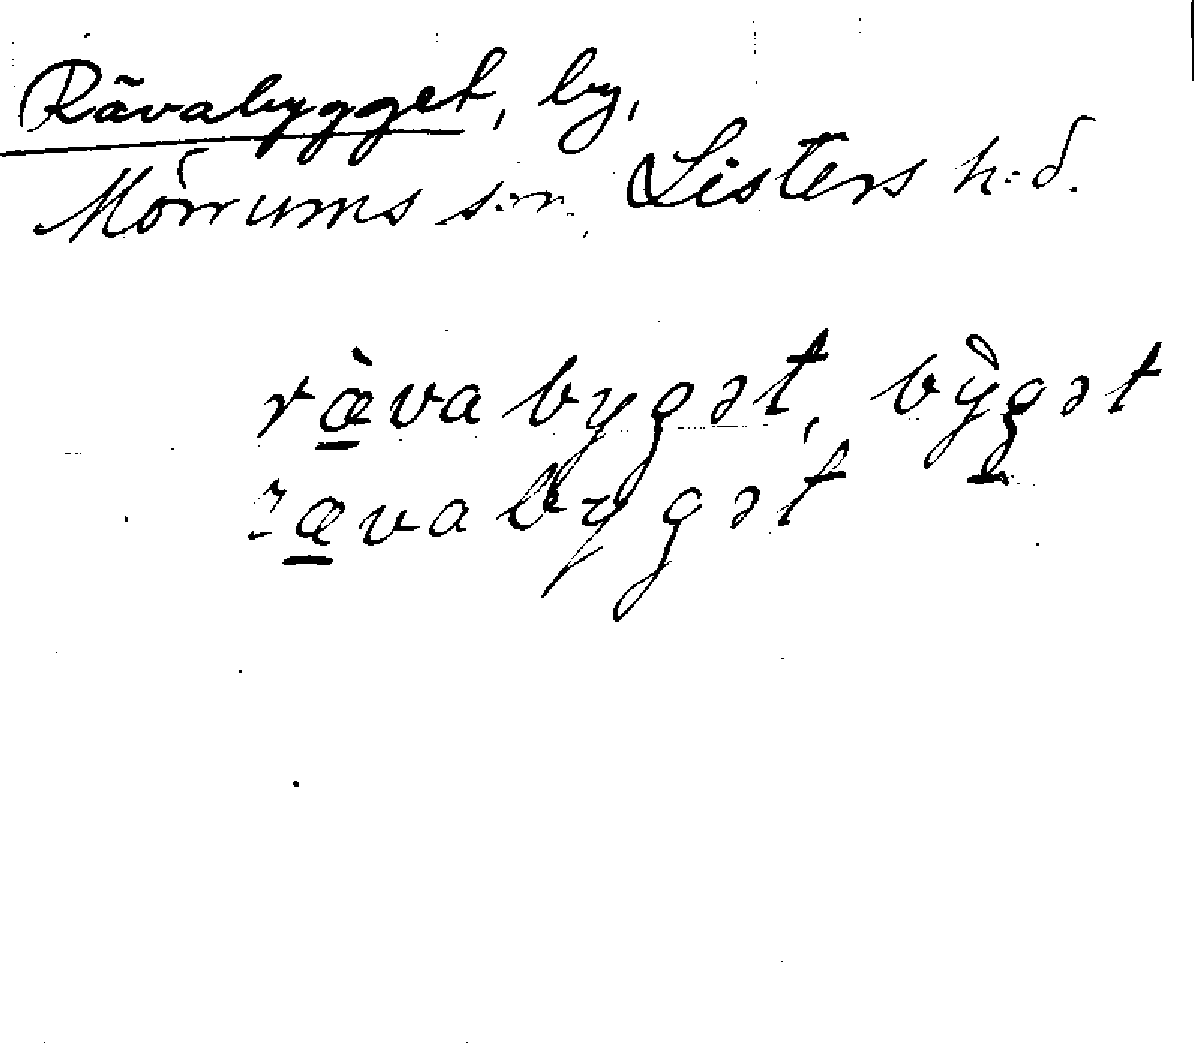 Rävabygget, by,
Mörrums s:n, Listers h:d.
ræ̲̀vabygət, bỳ̲gət
ræ̲vabygət